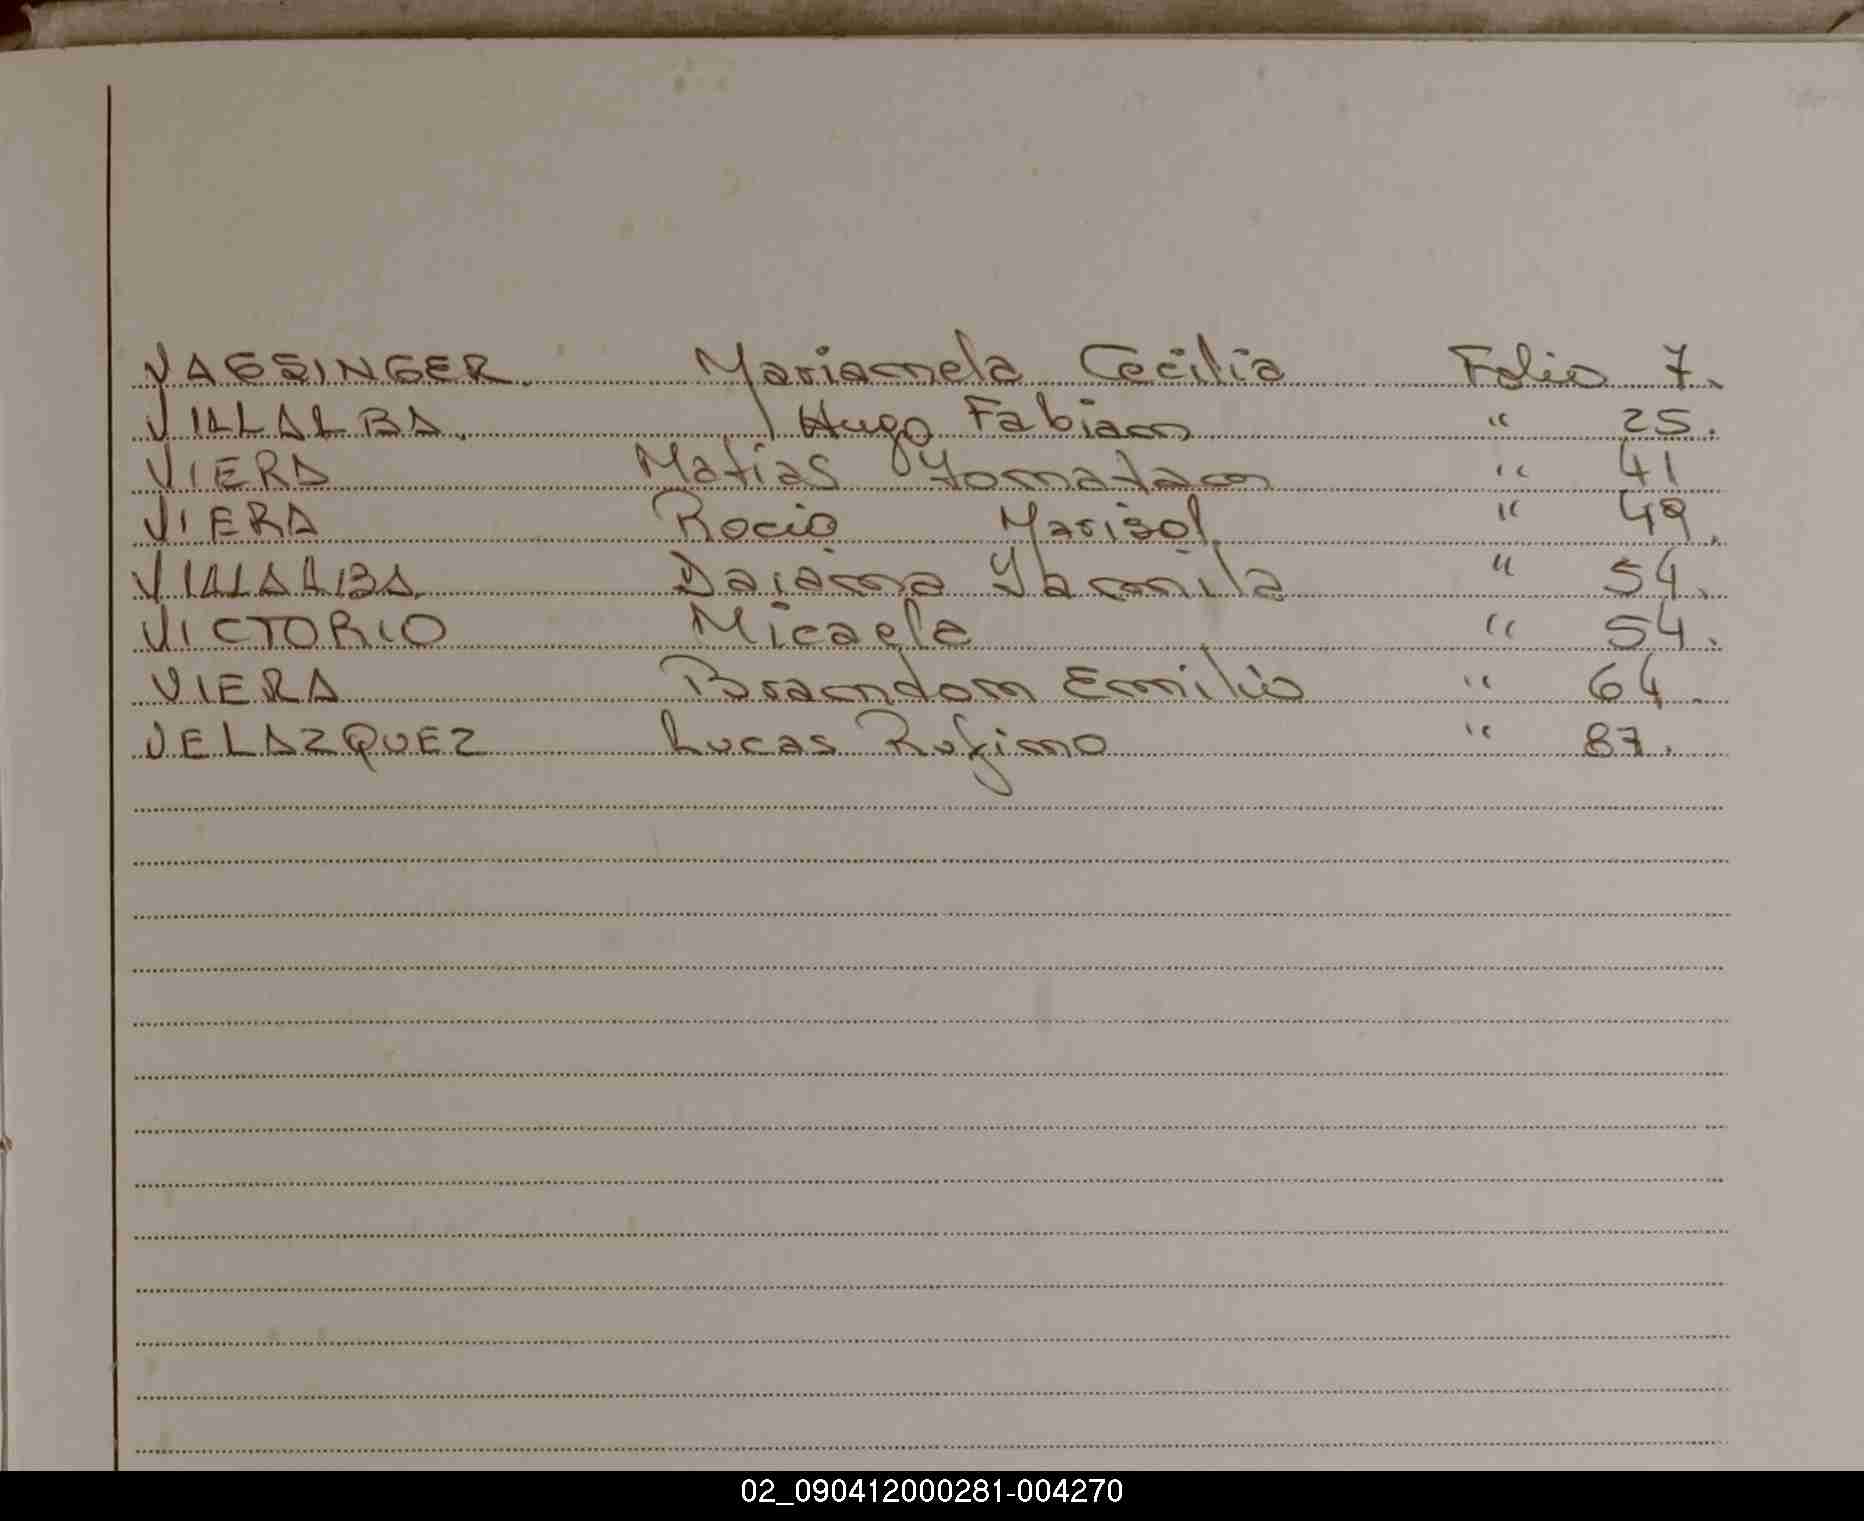 VAGSINGER. Mariamela Cecilia Folio 7.
VILLALBA. Hugo Fabian " 25.
VIERA Matias Yonatan " 41
VIERA Rocio Marisol " 49.
VILLALBA. Daiana Yamila " 54.
VICTORIO Micaela " 54.
VIERA Brandon Emilio " 64.
VELAZQUEZ Lucas Rufino " 87.
02_090412000281-004270